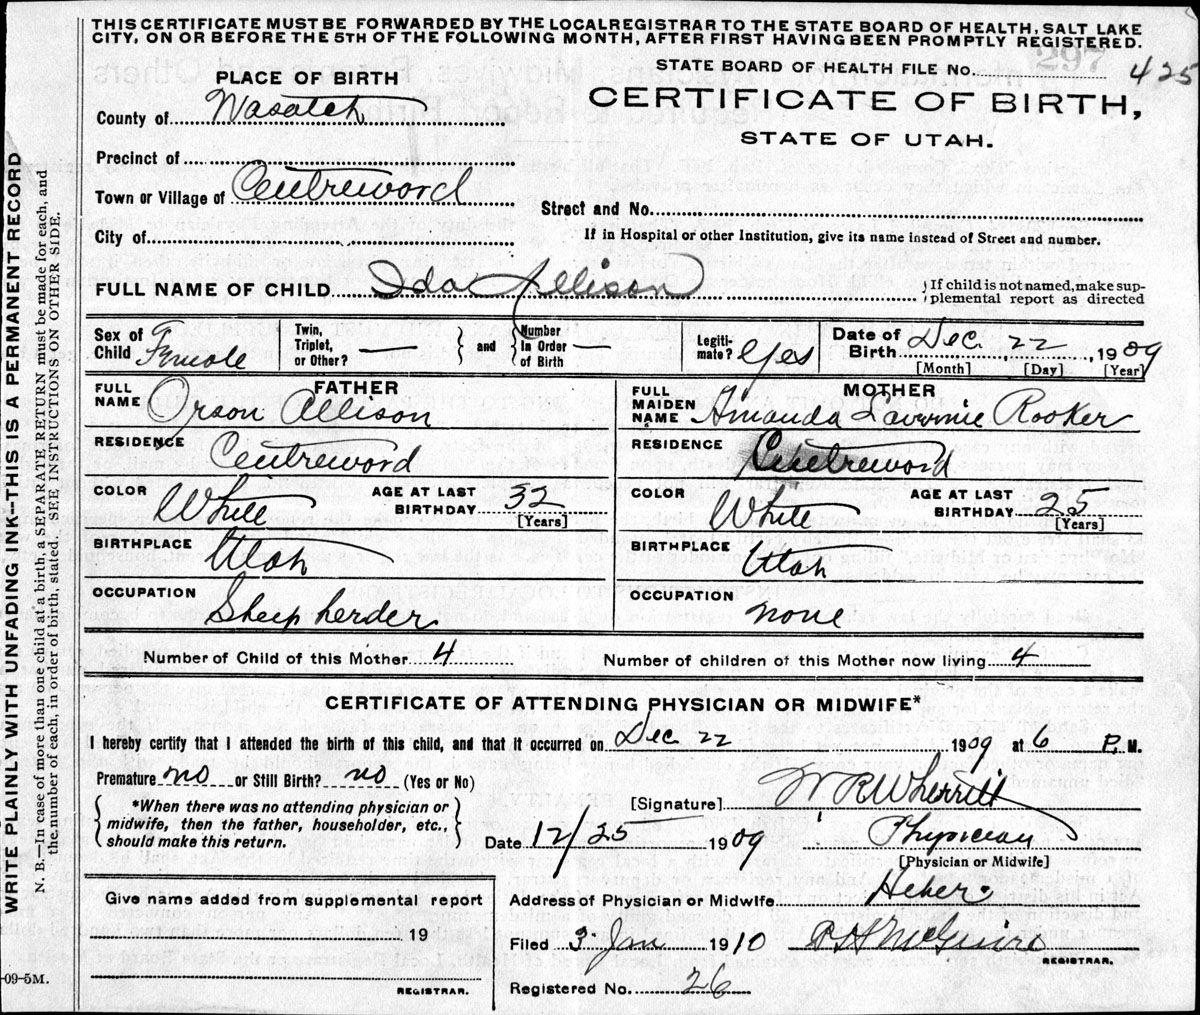 THIS CERTIFICATE MUST BE FORWARDED BY THE LOCAL REGISTRAR TO THE STATE BOARD OF HEALTH, SALT LAKE
CITY, ON OR BEFORE THE 5TH OF THE FOLLOWING MONTH, AFTER FIRST HAVING BEEN PROMPTLY REGISTERED.
297
STATE BOARD OF HEALTH FILE No. 425
PLACE OF BIRTH
CERTIFICATE OF BIRTH,
STATE OF UTAH.
County of Wasatch
Precinct of
Town or Village of Centreword
Street and No.
City of
If in Hospital or other Institution, give its name instead of Street and number.
FULL NAME OF CHILD Ida Allison
If child is not named, make sup-
plemental report as directed
Sex of Child Female
Twin, Triplet, or Other? —
and
Number in Order of Birth —
Legiti-mate? Yes
Date of Birth Dec 22, 1909
[Month] [Day] [Year]
FATHER
FULL NAME Orson Allison
RESIDENCE Centreword
COLOR White
AGE AT LAST BIRTHDAY 32
[Years]
BIRTHPLACE Utah
OCCUPATION Sheep herder
MOTHER
FULL MAIDEN NAME Amanda Lavonnie Rooker
RESIDENCE Centreword
COLOR White
AGE AT LAST BIRTHDAY 25
[Years]
BIRTHPLACE Utah
OCCUPATION none
Number of Child of this Mother 4
Number of children of this Mother now living 4
CERTIFICATE OF ATTENDING PHYSICIAN OR MIDWIFE*
I hereby certify that I attended the birth of this child, and that it occurred on Dec 22 1909 at 6 P. M.
Premature no or Still Birth? no (Yes or No)
*When there was no attending physician or
midwife, then the father, householder, etc.,
should make this return.
[Signature] W R Wherritt
Date 12/25 1909 Physician
[Physician or Midwife]
Give name added from supplemental report
19
REGISTRAR.
Address of Physician or Midwife Heber
Filed 3 Jan 1910 McGuire
REGISTRAR.
Registered No. 26
09-5M.
WRITE PLAINLY WITH UNFADING INK--THIS IS A PERMANENT RECORD
N. B.—In case of more than one child at a birth, SEPARATE RETURN must be made for each, and
the number of each, in order of birth, stated. SEE INSTRUCTIONS ON OTHER SIDE.